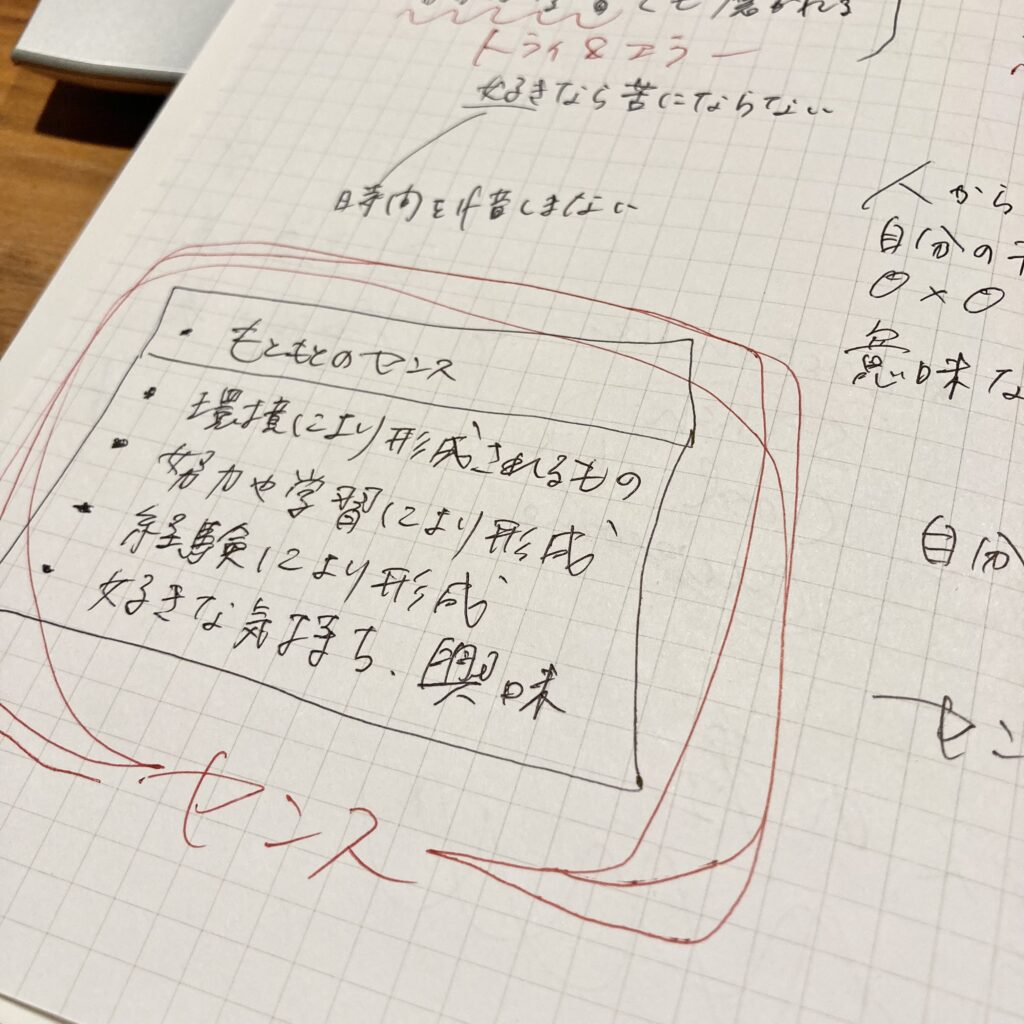 ても磨かれる
トライ&エラー
好きなら苦にならない
時間を惜しまない
・もともとのセンス
・環境により形成されるもの
・努力や学習により形成
・経験により形成
・好きな気持ち、興味
センス
人から
自分の
○×○
意味な
自分
セン